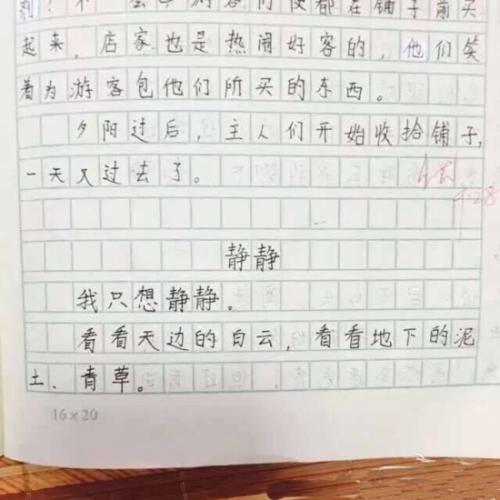 都在铺子前买
起来，店家也是热闹好客的，他们笑
着为游客包他们所买的东西。
夕阳过后，主人们开始收拾铺子，
一天又过去了。
静静
我只想静静。
看看天边的白云，看看地下的泥
土、青草。
16×20